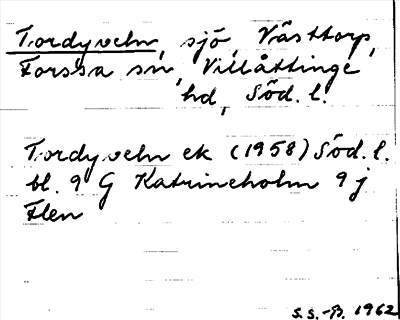 Tordyveln, sjö, Västtorp,
Forssa sn, Villåttinge
hd, Söd. l.
Tordyveln ek (1958) Söd. l.
bl. 9 G Katrineholm 9 j
Flen
S.S.-B. 1962